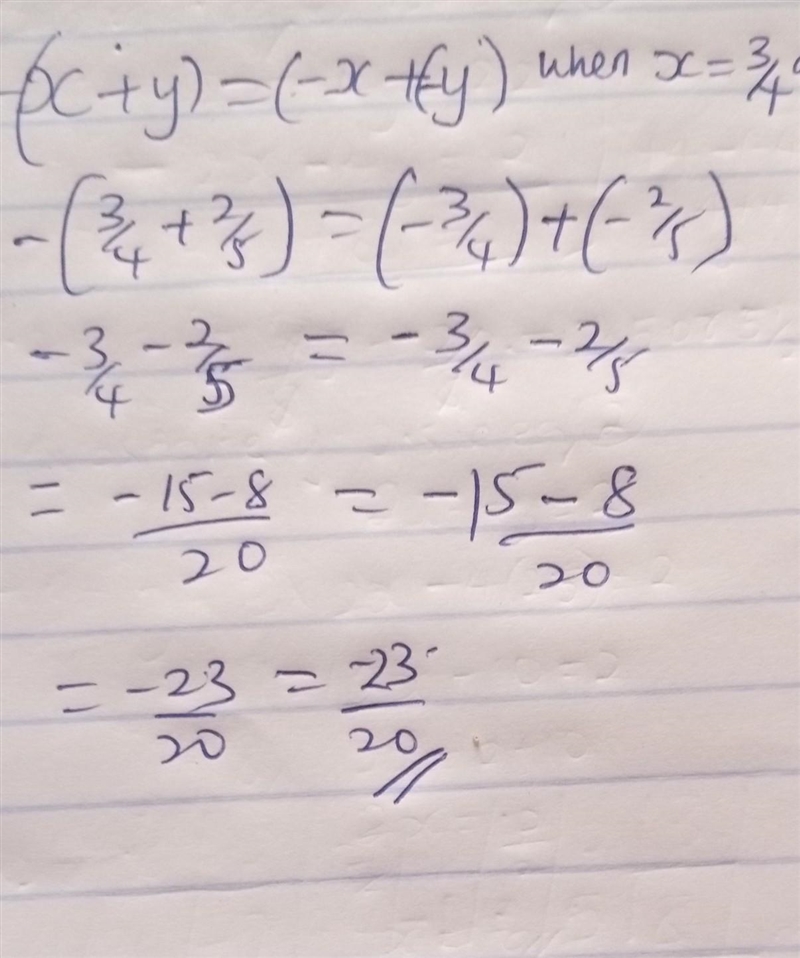 -(x+y)=(-x+(-y) when x=3/4
-(3/4+2/5)=(-3/4)+(-2/5)
-3/4-2/5 = -3/4-2/5
= -15-8/20 = -15-8/20
= -23/20 = -23/20